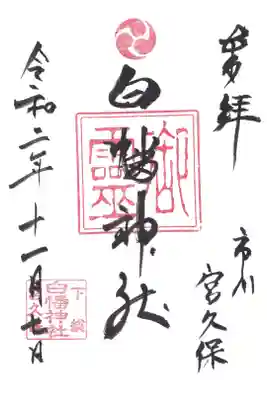 奉拝
市川
宮久保
白幡神社
御霊璽
令和二年十一月七日
下総
白幡神社
宮久保